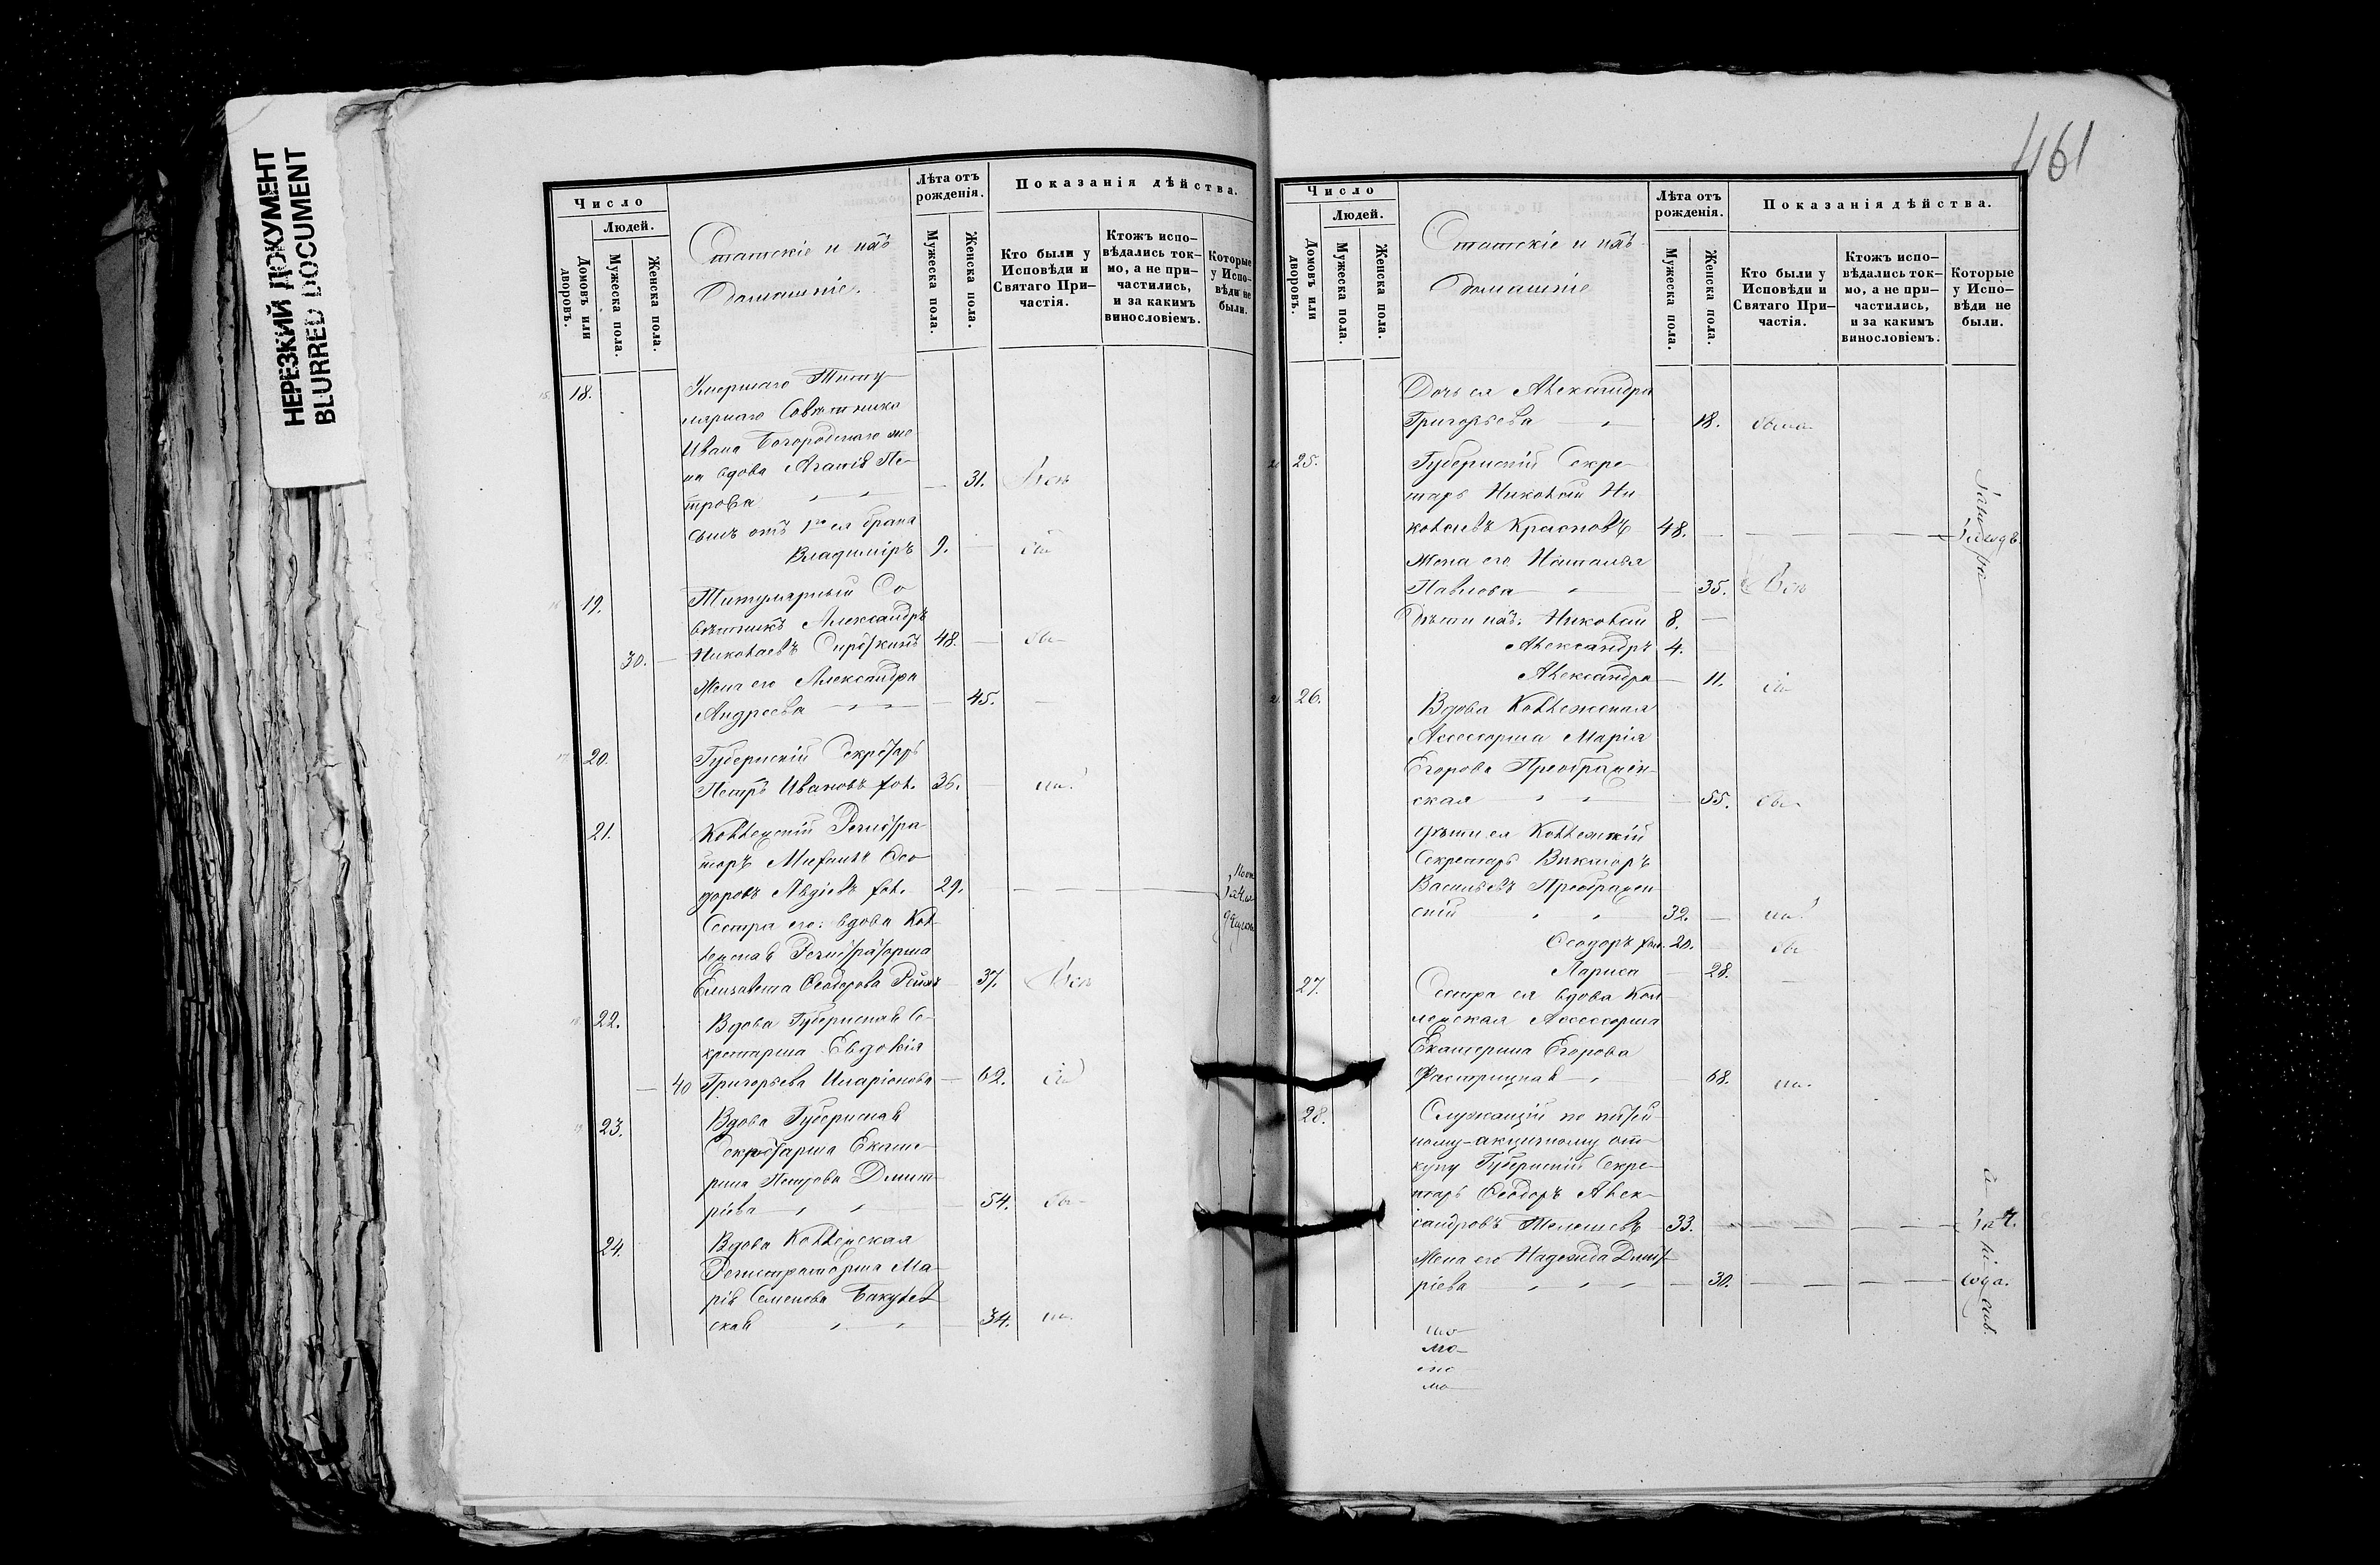 НЕРЕЗКИЙ ДОКУМЕНТ
BLURRED DOCUMENT
Число
Людей.
Домовъ или дворовъ.
Мужеска пола.
Женска пола.
Статскіе и ихъ
Домашніе.
Лѣта отъ рожденія.
Мужеска пола.
Женска пола.
Показанія дѣйства.
Кто были у Исповѣди и Святаго Причастія.
Ктожъ исповѣдались токмо, а не причастились, и за какимъ винословіемъ.
Которые у Исповѣди не были.
18. Умершаго Титу-
лярнаго Совѣтника
Ивана Богородскаго же-
на вдова Пе-
трова 31.
сынъ отъ 1го ея брака
Владиміръ 9.
19. Титулярный Со-
вѣтникъ Александръ
30. Николаевъ 48.
Жена его Александра
Андреева 45.
20. Губернскій Секретарь
Петръ Ивановъ хол. 36.
21. Коллежскій Регистра-
торъ Ѳео-
доровъ хол. 29.
Сестра его: вдова Кол-
лежская Регистраторша
Елизавета Ѳеодорова 37.
22. Вдова Губернская Се-
кретарша Евдокія
40 Григорьева Иларіонова 62.
23. Вдова Губернская
Секретарша Екате-
рина Петрова Дмит-
ріева 54.
24. Вдова Коллежская
Регистраторша Ма-
рія Семенова
ская 34.
461
Число
Людей.
Домовъ или дворовъ.
Мужеска пола.
Женска пола.
Статскіе и ихъ
Домашніе
Лѣта отъ рожденія.
Мужеска пола.
Женска пола.
Показанія дѣйства.
Кто были у Исповѣди и Святаго Причастія.
Ктожъ исповѣдались токмо, а не причастились, и за какимъ винословіемъ.
Которые у Исповѣди не были.
Дочь ея Александра
Григорьева 18. была
25. Губернскій Секре-
тарь Николай Ни-
колаевъ Красновъ 48.
Жена его Наталья
Павлова 35.
Дѣти ихъ: Николай 8.
Александръ 4.
Александра 11.
26. Вдова Коллежская
Асессорша Марія
Егорова Преображен-
ская 55.
дѣти ея Коллежскій
Секретарь Викторъ
Васильевъ Преображен-
скій 32.
Ѳеодоръ хол. 20.
Лариса 28.
27. Сестра ея вдова Кол-
лежская Асессорша
Екатерина Егорова
68.
28. Служащій по питей-
ному-акцизному от-
купу Губернскій Секре-
тарь Ѳеодоръ Алек-
сандровъ 33.
Жена его Надежда Дмит-
ріева 30.